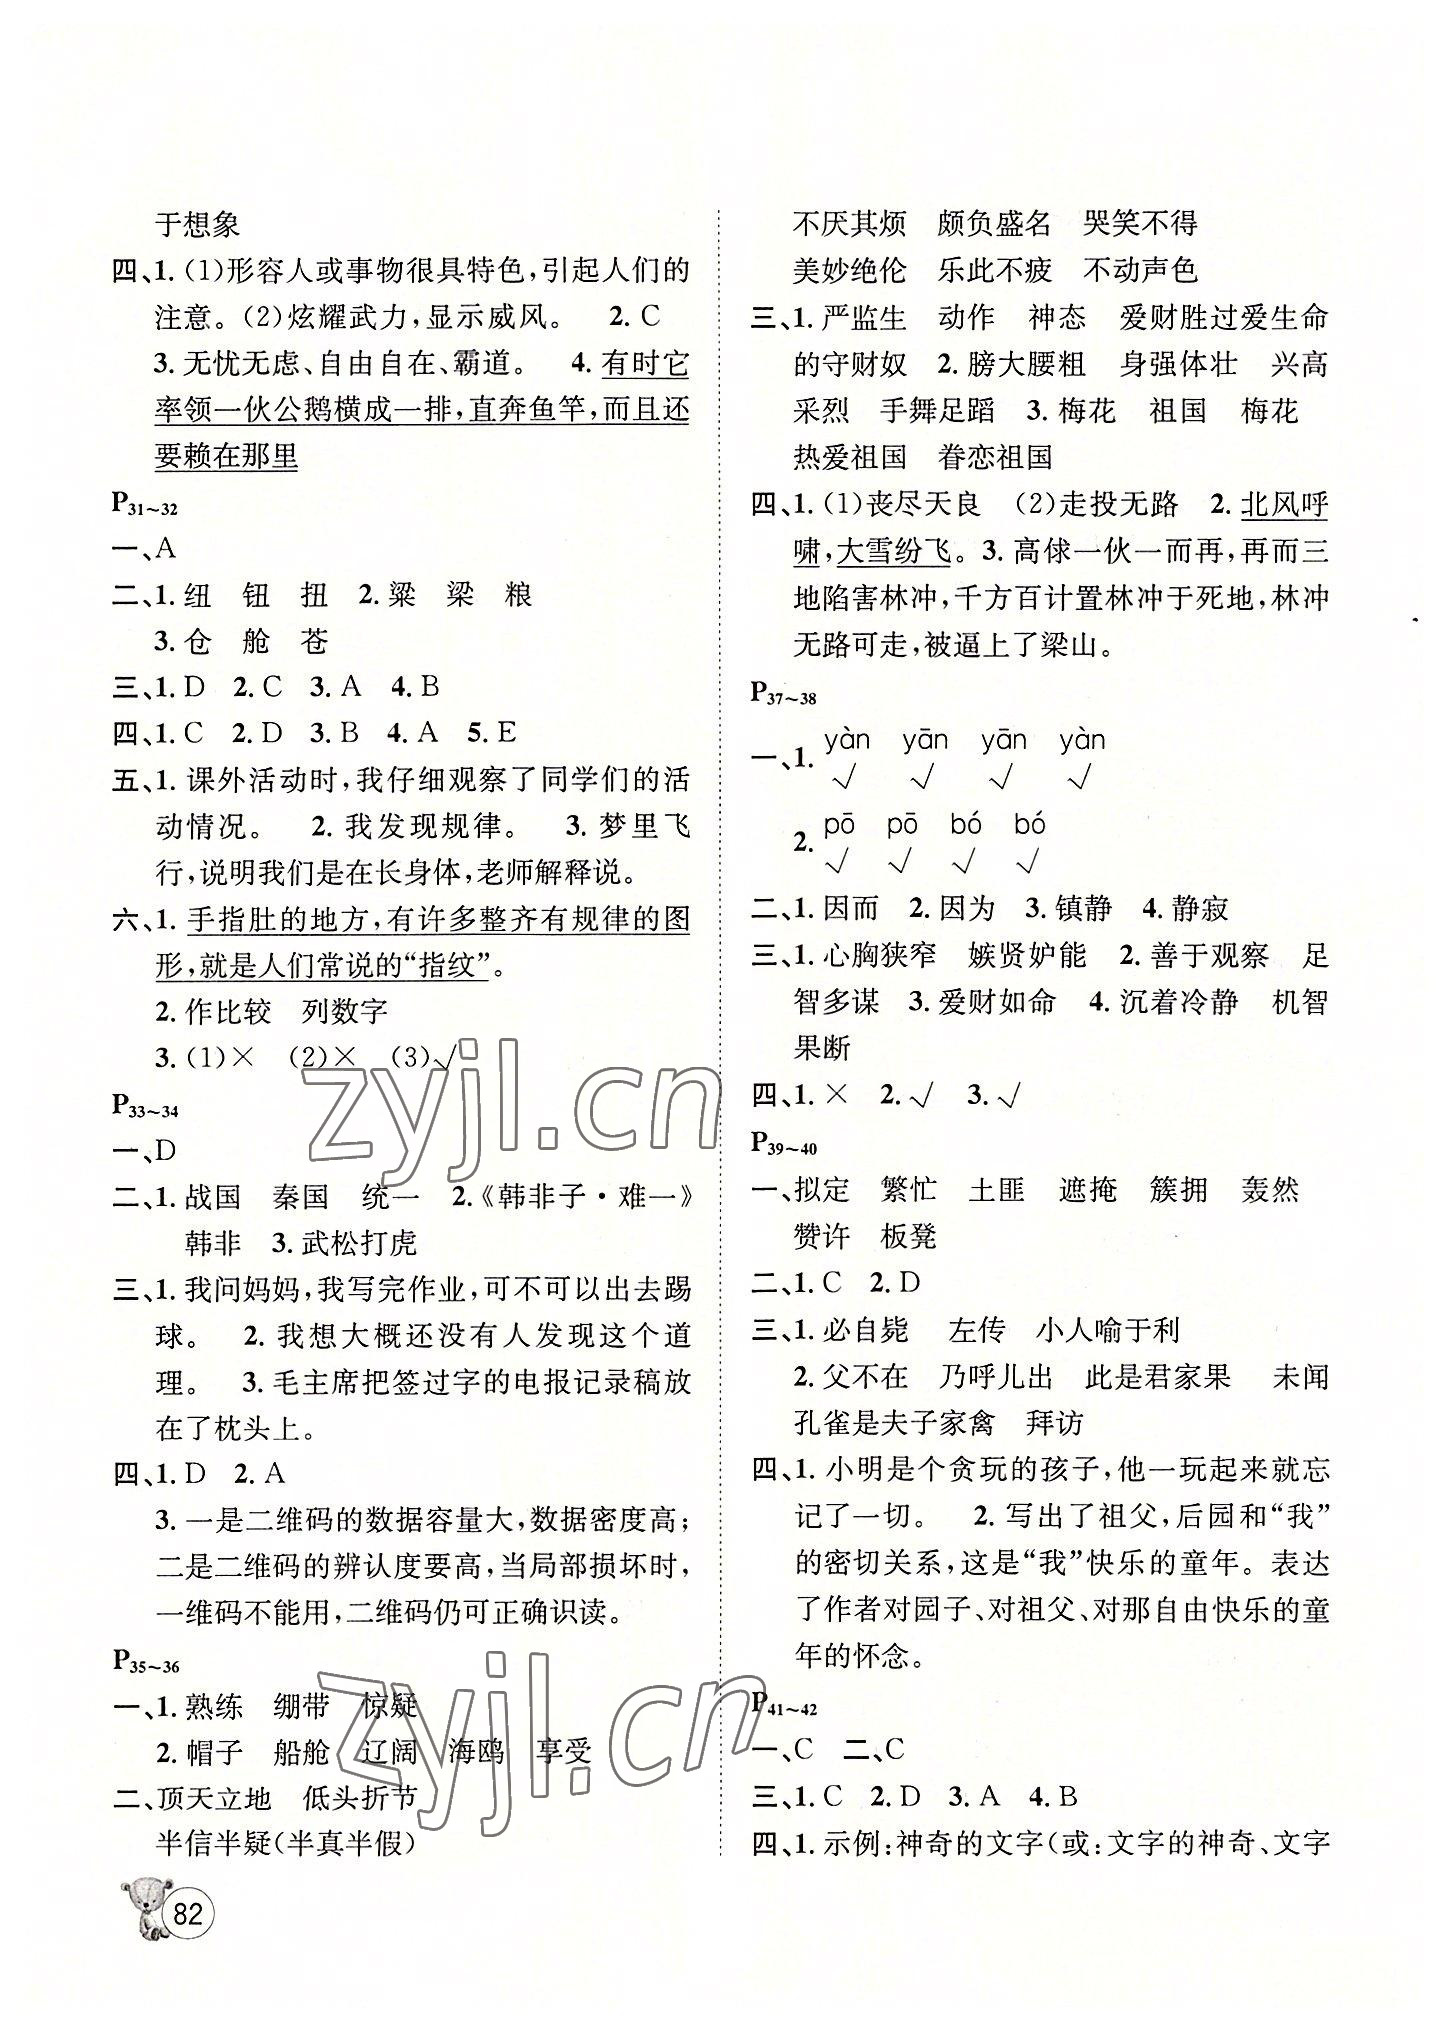 于想象
四、1. (1)形容人或事物很具特色,引起人们的
注意。(2)炫耀武力,显示威风。 2. C
3. 无忧无虑、自由自在、霸道。 4. 有时它
率领一伙公鹅横成一排,直奔鱼竿,而且还
要赖在那里
P31~32
一、A
二、1. 纽 钮 扭 2. 粱 梁 粮
3. 仓 舱 苍
三、1. D 2. C 3. A 4. B
四、1. C 2. D 3. B 4. A 5. E
五、1. 课外活动时,我仔细观察了同学们的活
动情况。 2. 我发现规律。 3. 梦里飞
行,说明我们是在长身体,老师解释说。
六、1. 手指肚的地方,有许多整齐有规律的图
形,就是人们常说的“指纹”。
2. 作比较 列数字
3. (1)× (2)× (3)√
P33~34
一、D
二、1. 战国 秦国 统一 2.《韩非子·难一》
韩非 3. 武松打虎
三、1. 我问妈妈,我写完作业,可不可以出去踢
球。 2. 我想大概还没有人发现这个道
理。 3. 毛主席把签过字的电报记录稿放
在了枕头上。
四、1. D 2. A
3. 一是二维码的数据容量大,数据密度高;
二是二维码的辨认度要高,当局部损坏时,
一维码不能用,二维码仍可正确识读。
P35~36
一、1. 熟练 绷带 惊疑
2. 帽子 船舱 辽阔 海鸥 享受
二、顶天立地 低头折节
半信半疑(半真半假)
82
不厌其烦 颇负盛名 哭笑不得
美妙绝伦 乐此不疲 不动声色
三、1. 严监生 动作 神态 爱财胜过爱生命
的守财奴 2. 膀大腰粗 身强体壮 兴高
采烈 手舞足蹈 3. 梅花 祖国 梅花
热爱祖国 眷恋祖国
四、1. (1)丧尽天良 (2)走投无路 2. 北风呼
啸,大雪纷飞。3. 高俅一伙一而再,再而三
地陷害林冲,千方百计置林冲于死地,林冲
无路可走,被逼上了梁山。
P37~38
一、1. yàn yān yān yàn
√ √ √ √
2. pō pō bó bó
√ √ √ √
二、1. 因而 2. 因为 3. 镇静 4. 静寂
三、1. 心胸狭窄 嫉贤妒能 2. 善于观察 足
智多谋 3. 爱财如命 4. 沉着冷静 机智
果断
四、1. × 2. √ 3. √
P39~40
一、拟定 繁忙 土匪 遮掩 簇拥 轰然
赞许 板凳
二、1. C 2. D
三、1. 必自毙 左传 小人喻于利
2. 父不在 乃呼儿出 此是君家果 未闻
孔雀是夫子家禽 拜访
四、1. 小明是个贪玩的孩子,他一玩起来就忘
记了一切。 2. 写出了祖父,后园和“我”
的密切关系,这是“我”快乐的童年。表达
了作者对园子、对祖父、对那自由快乐的童
年的怀念。
P41~42
一、C 二、C
三、1. C 2. D 3. A 4. B
四、1. 示例:神奇的文字(或:文字的神奇、文字
zyjl.cn
zyjl.cn